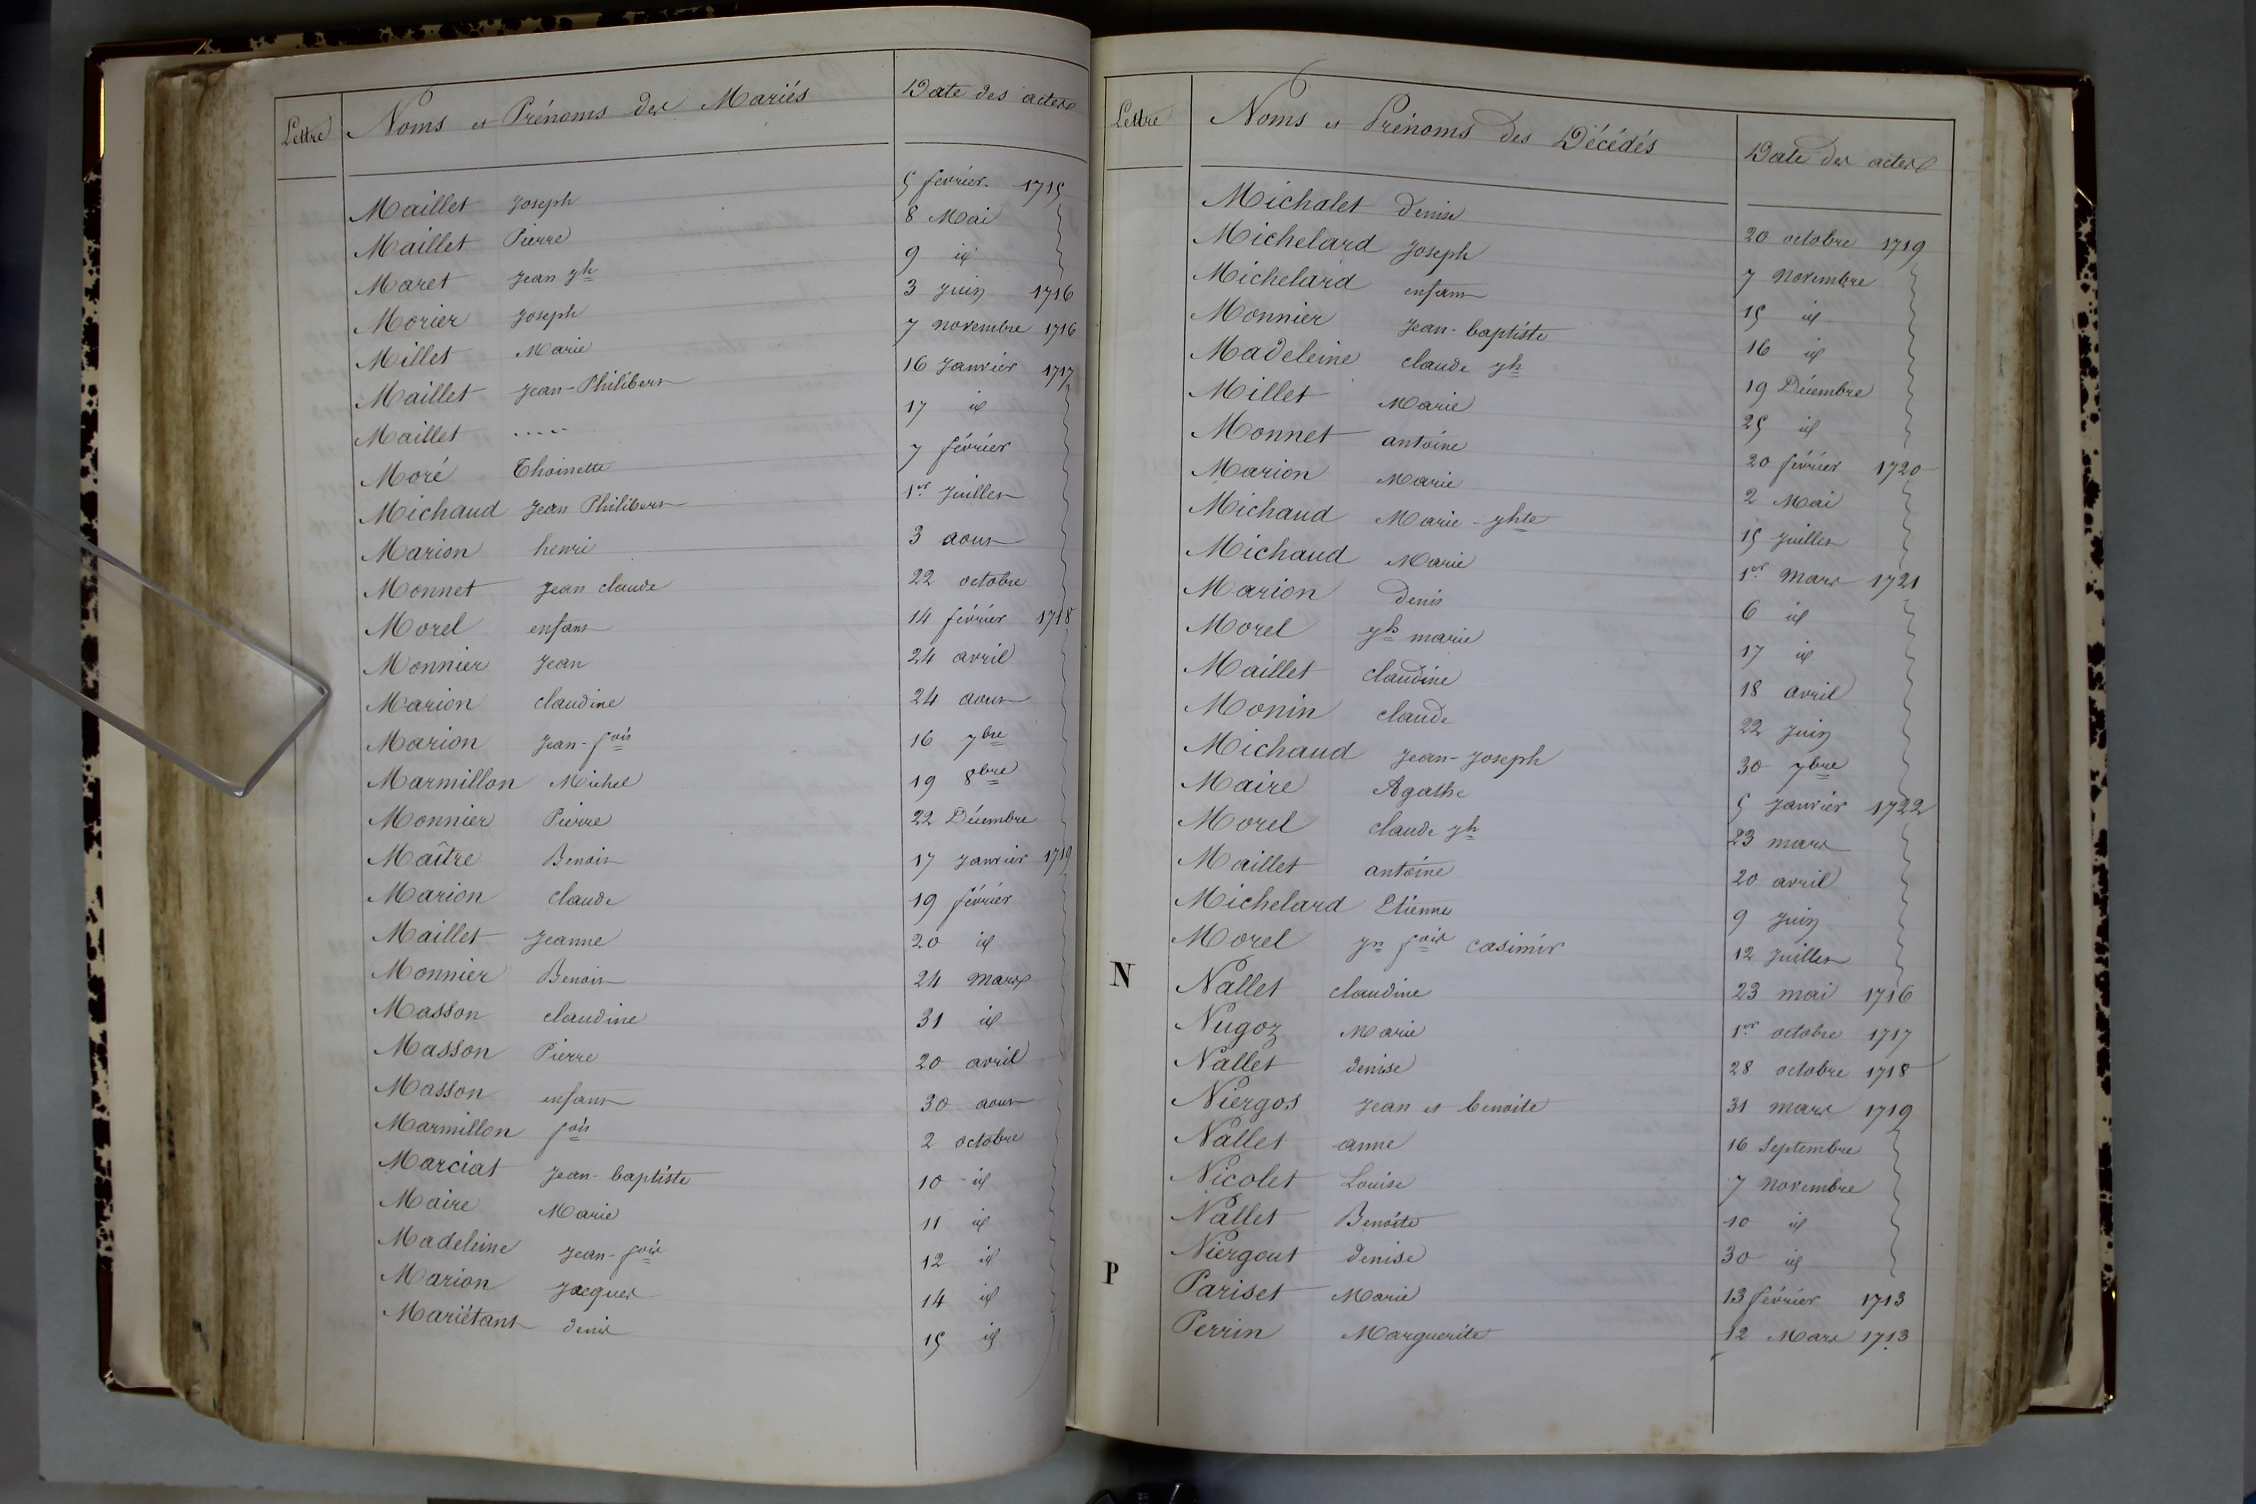 Lettre Noms et Prénoms des Mariés Date des actes
Maillet Joseph 5 février 1715
Maillet Pierre 8 Mai
Maret Jean jh 9 id
Morier Joseph 3 juin 1716
Millet Marie 7 novembre 1716
Maillet Jean-Philibert 16 Janvier 1717
Maillet ..... 17 id
Moré Thoinette 7 février
Michaud Jean Philibert 1er Juillet
Marion henri 3 aout
Monnet Jean claude 22 octobre
Morel enfant 14 février 1718
Monnier Jean 24 avril
Marion claudine 24 aout
Marion Jean-fois 16 7bre
Marmillon Michel 19 8bre
Monnier Pierre 22 Décembre
Maître Benoit 17 Janvier 1719
Marion claude 19 février
Maillet Jeanne 20 id
Monnier Benoit 24 Mars
Masson claudine 31 id
Masson Pierre 20 avril
Masson enfant 30 aout
Marmillon fois 2 octobre
Marciat Jean-baptiste 10 id
Maire Marie 11 id
Madeleine Jean-fois 12 id
Marion Jacques 14 id
Mariétant denis 15 id
Lettre Noms et Prénoms des Décédés Date des actes
Michalet denise 20 octobre 1719
Michelard Joseph 7 novembre
Michelard enfant 15 id
Monnier Jean-baptiste 16 id
Madeleine claude jh 19 Décembre
Millet Marie 25 id
Monnet antoine 20 février 1720
Marion Marie 2 Mai
Michaud Marie-jhte 15 Juillet
Michaud Marie 1er Mars 1721
Marion denis 6 id
Morel jh marie 17 id
Maillet claudine 18 avril
Monin claude 22 Juin
Michaud Jean-Joseph 30 7bre
Maire Agathe 5 Janvier 1722
Morel claude jh 23 mars
Maillet antoine 20 avril
Michelard Etienne 9 Juin
Morel jn fois casimir 12 Juillet
N Nallet claudine 23 mai 1716
Nugoz Marie 1er octobre 1717
Nallet denise 28 octobre 1718
Niergos Jean et benoite 31 mars 1719
Nallet anne 16 Septembre
Nicolet Louise 7 Novembre
Nallet Benoite 10 id
Niergout denise 30 id
P Pariset Marie 13 février 1713
Perrin Marguerite 12 Mars 1713